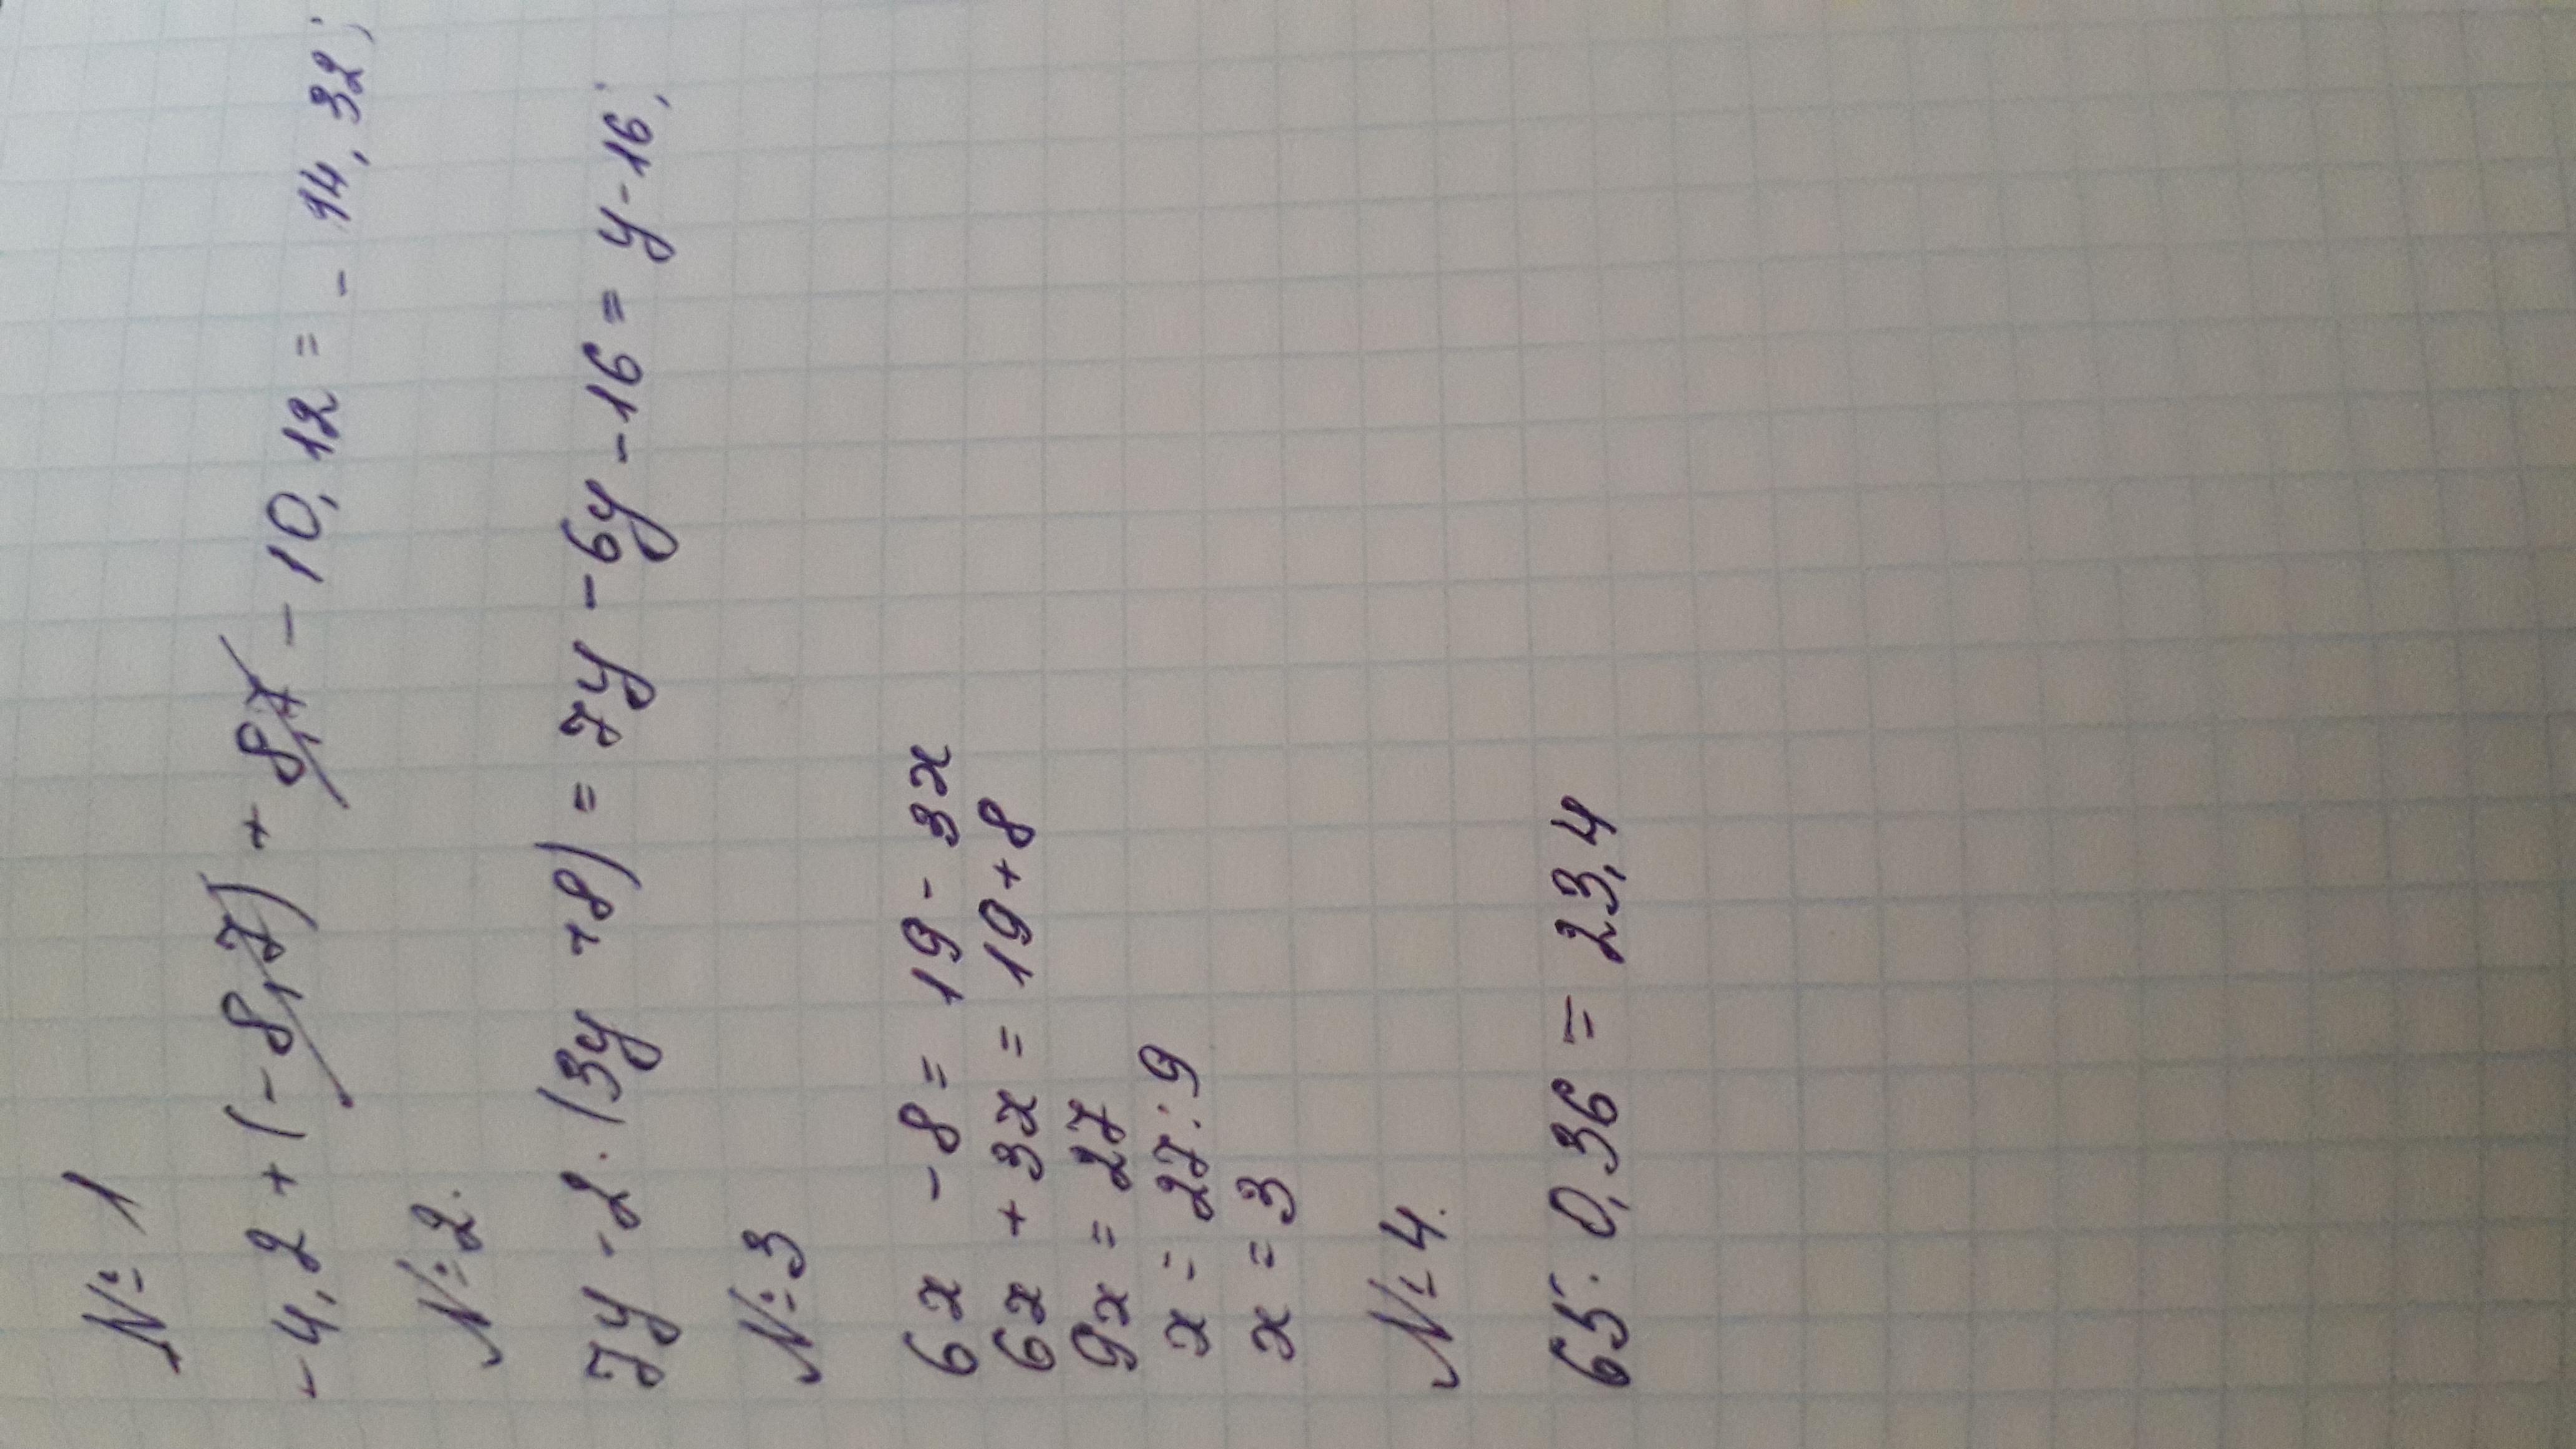 № 1
-4,2 + (-8,7) + 8,7 - 10,12 = - 14,32;
№ 2.
7y - 2 · (3y + 8) = 7y - 6y - 16 = y - 16;
№ 3
6x - 8 = 19 - 3x
6x + 3x = 19 + 8
9x = 27
x = 27 : 9
x = 3
№ 4.
65 · 0,36 = 23,4